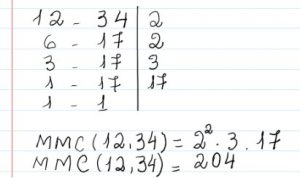 12 - 34 | 2
6 - 17 | 2
3 - 17 | 3
1 - 17 | 17
1 - 1 |
MMC (12,34) = 2² . 3 . 17
MMC (12,34) = 204